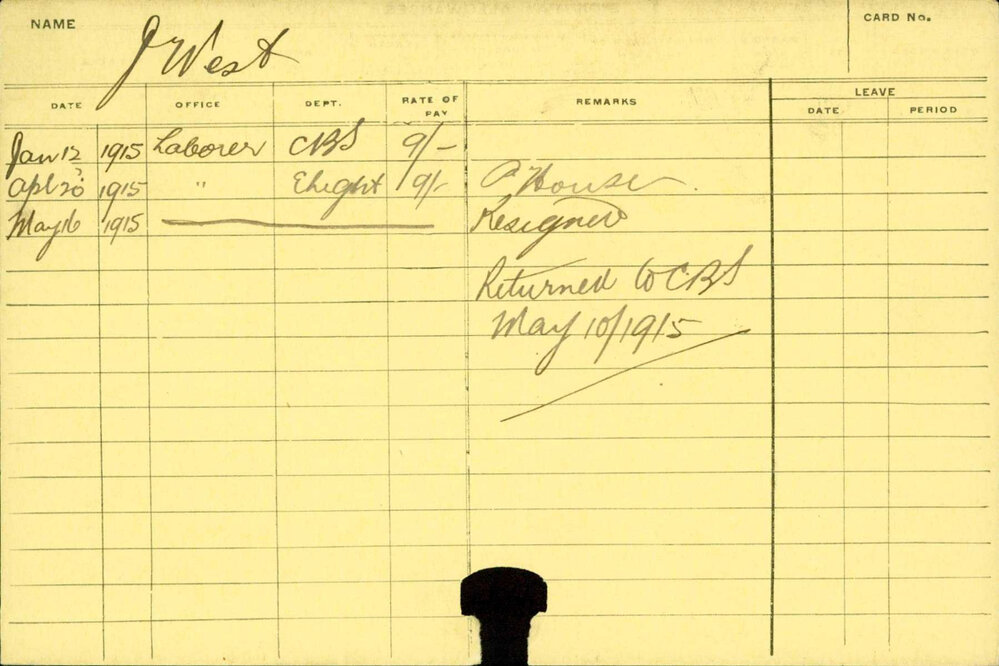 NAME J West CARD No.
DATE OFFICE DEPT. RATE OF PAY REMARKS LEAVE
DATE PERIOD
Jan 12 1915 Laborer CBS 9/-
Apl 20 1915 " Elight 9/- P House
May 16 1915 Resigned
Returned to CBS
May 10/1915